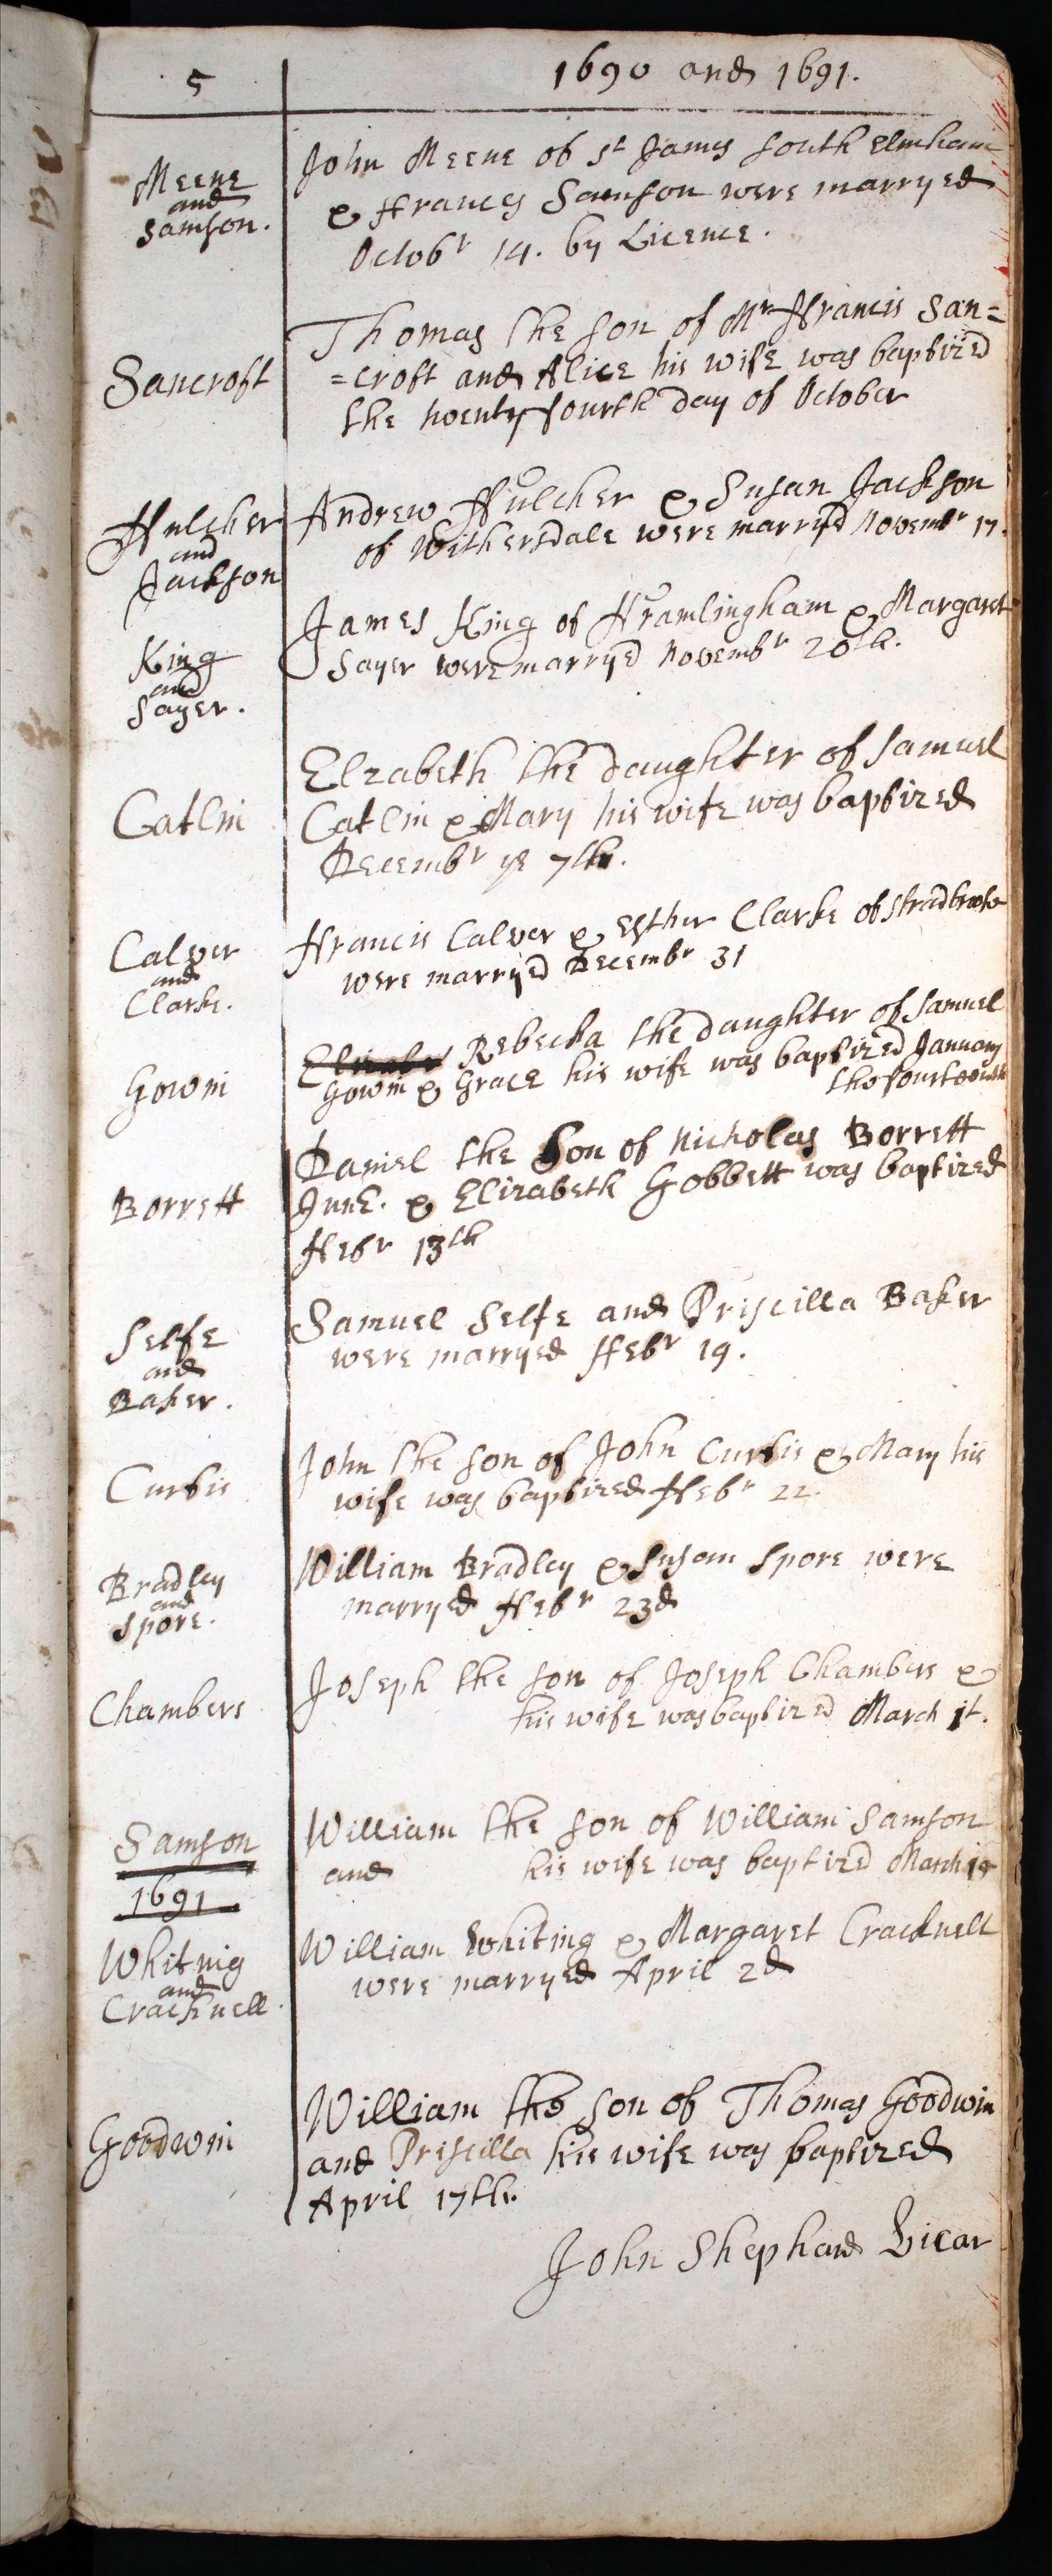 5
1690 and 1691.
Meene
and
Samson.
John Meene of St James South Elmham
& Frances Samson were marryed
Octobr 14. by Licence.
Sancroft
Thomas the son of Mr Francis San=
=croft and Alice his wife was baptized
the twenty fourth day of October
Fulcher
and
Jackson
Andrew Fulcher & Susan Jackson
of Withersdale were marryed Novembr 17.
King
and
Sayer.
James King of Framlingham & Margaret
Sayer were marryed Novembr 20th.
Catlin
Elzabeth the daughter of Samuel
Catlin & Mary his wife was baptized
Decembr ye 7th.
Calver
and
Clarke.
Francis Calver & Esther Clarke of Stradbrooke
were marryed Decembr 31
Gowin
Rebecka the daughter of Samuel
Gowin & Grace his wife was baptized January
the fourteenth
Borrett
Daniel the Son of Nicholas Borrett
& Elizabeth Gobbett was baptized
Febr 13th
Selfe
and
Baker.
Samuel Selfe and Priscilla Baker
were marryed Febr 19.
Curtis
John the son of John Curtis & Mary his
wife was baptized Febr 22.
Bradley
and
Spore.
William Bradley & Susan Spore were
marryed Febr 23d
Chambers
Joseph the son of Joseph Chambers &
his wife was baptized March 1t.
Samson
William the son of William Samson
and his wife was baptized March
1691
Whiting
and
Cracknell.
William Whiting & Margaret Cracknell
were marryed April 2d
Goodwin
William the son of Thomas Goodwin
and Priscilla his wife was baptized
April 17th.
John Shephard Vicar